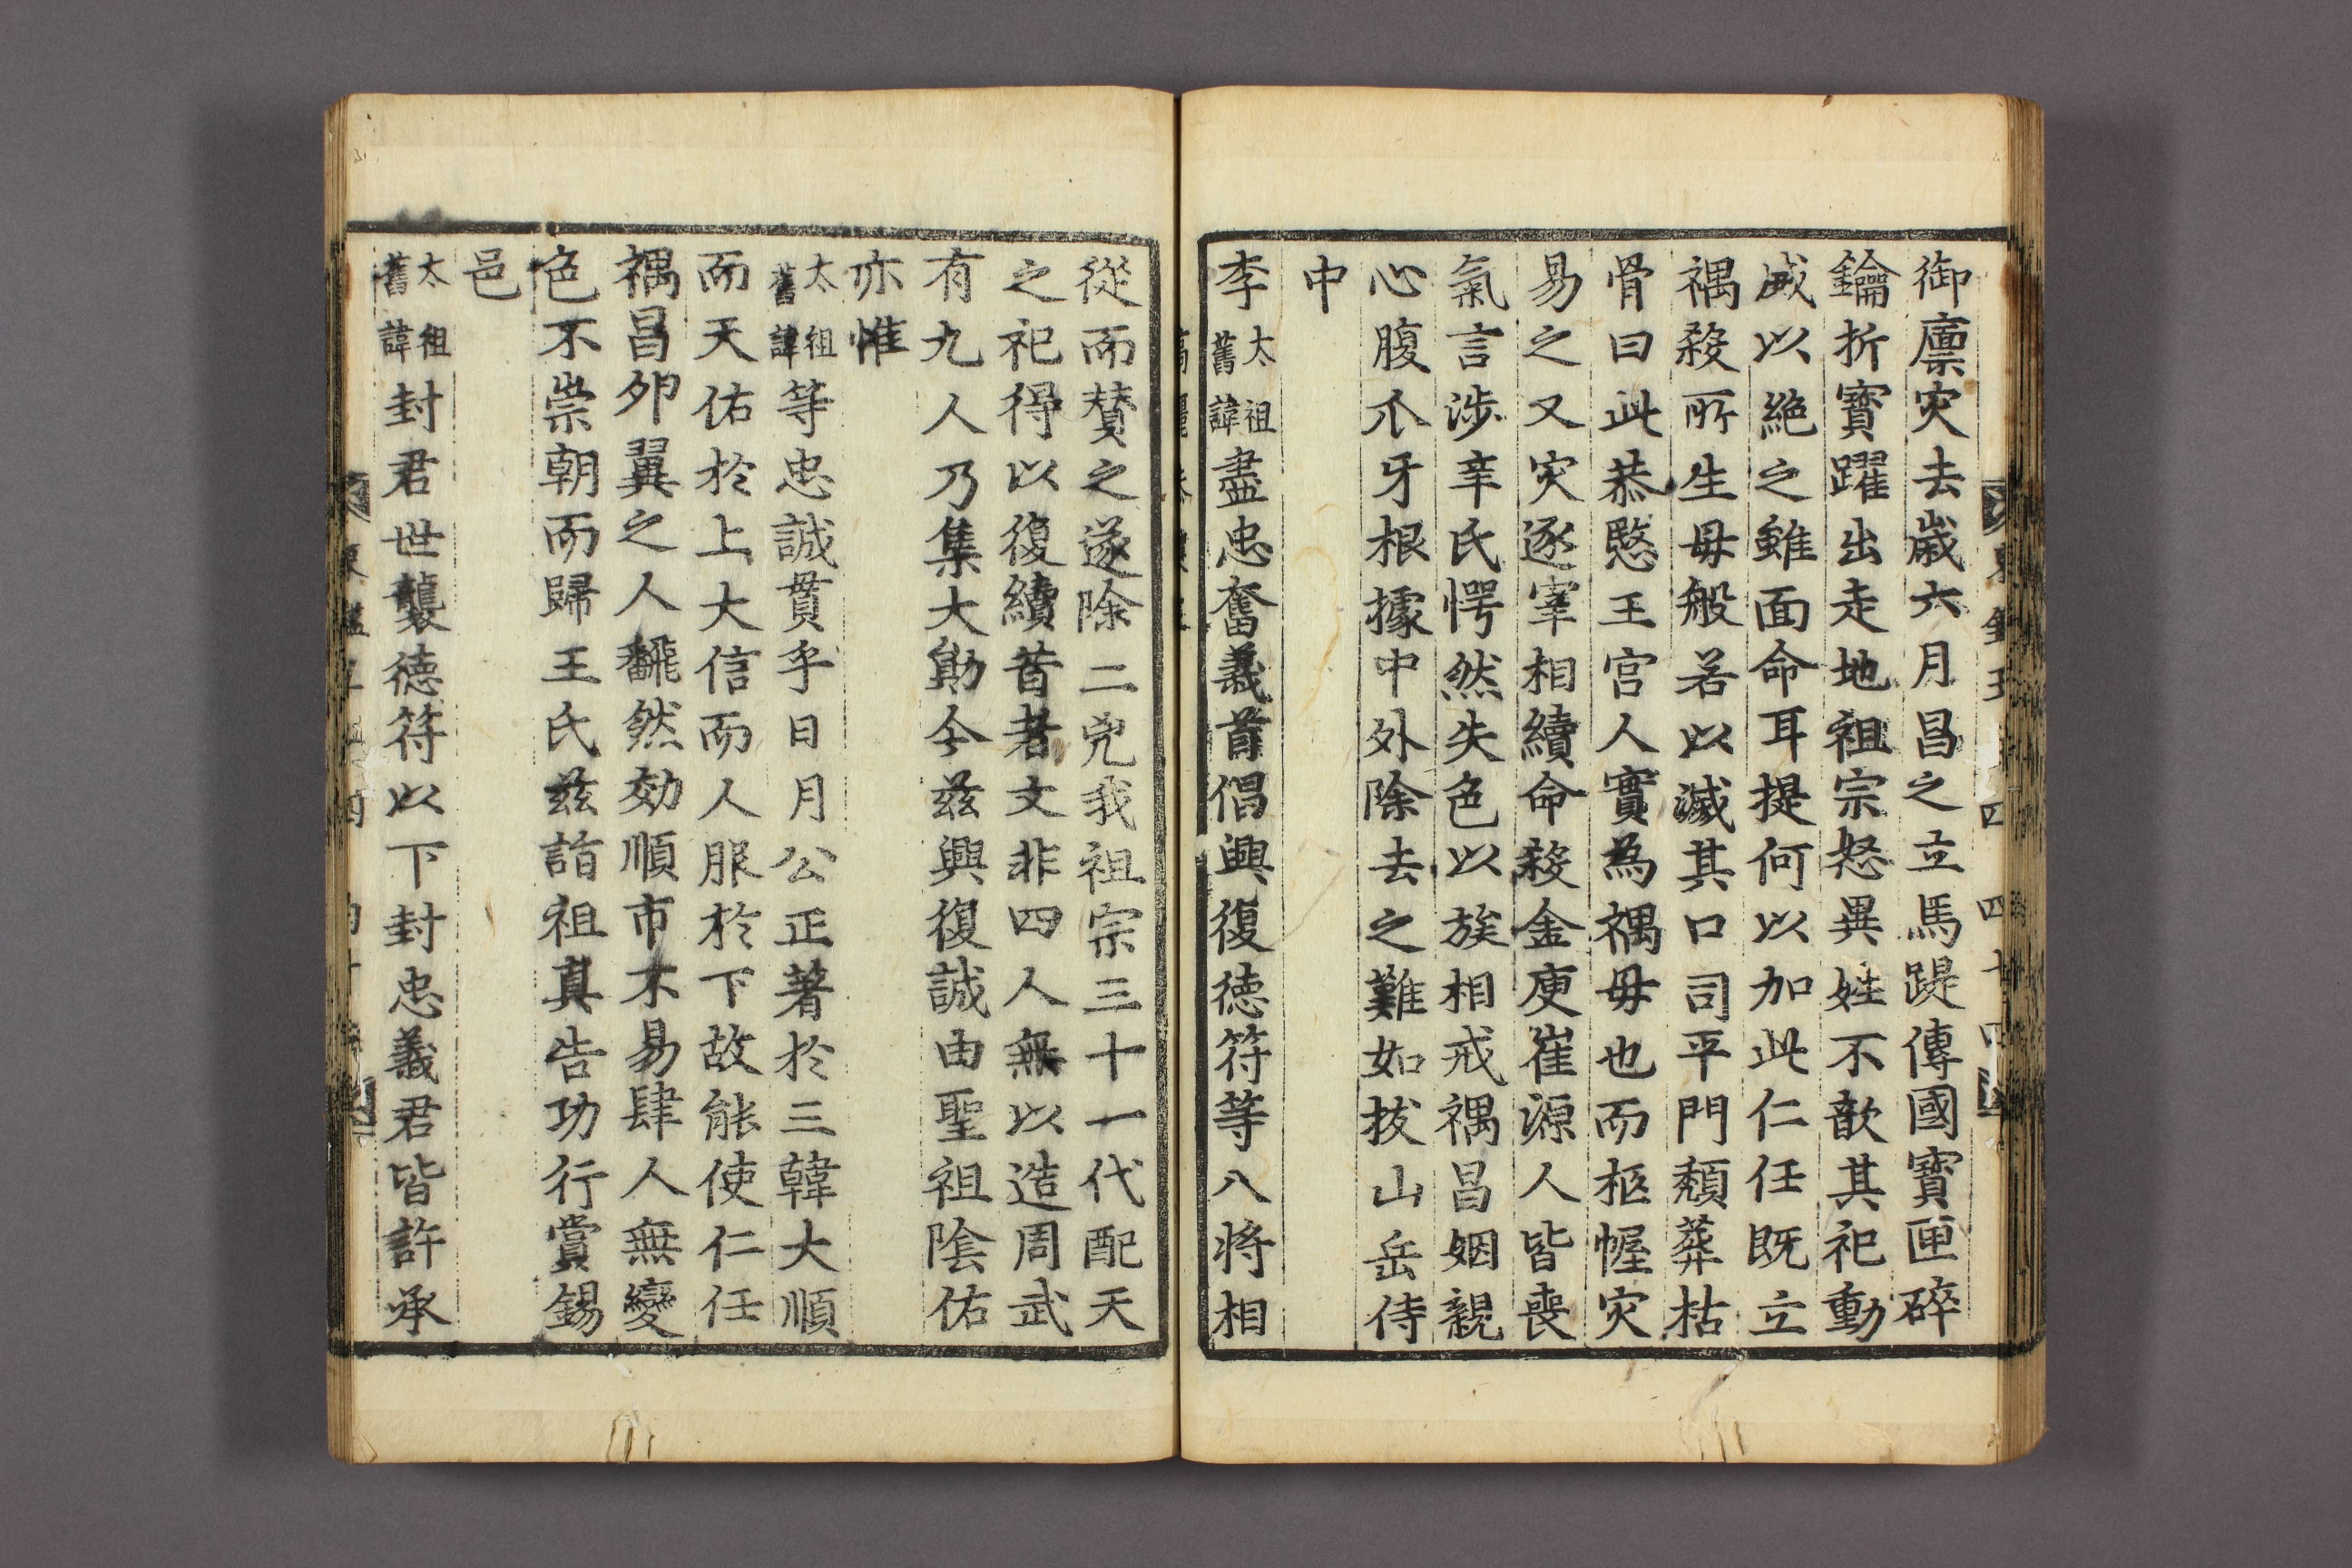 御廩灾去歲六月昌之立馬踶傳國寶匣碎
鑰折寳躍出走地祖宗怒異姓不歆其祀動
威以絶之雖面命耳提何以加此仁任既立
禑殺所生母般若以滅其口司平門頹葬枯
骨曰此恭愍王宫人實為禑母也而柩幄灾
易之又灾逐宰相續命殺金庾崔源人皆喪
氣言涉辛氏愕然失色以族相戒禑昌姻親
心腹爪牙根據中外除去之難如拔山岳侍
中
李太祖舊諱盡忠奮義首倡興復德符等八將相
從而賛之遂除二兇我祖宗三十一代配天
之祀得以復續昔者文非四人無以造周武
有九人乃集大勛今茲興復誠由聖祖陰佑
亦惟
太祖舊諱等忠誠貫乎日月公正著於三韓大順
而天佑於上大信而人服於下故能使仁任
禑昌卵翼之人飜然効順市不易肆人無變
色不崇朝而歸王氏茲詣祖真告功行賞錫
邑
太祖舊諱封君世襲德符以下封忠義君皆許承